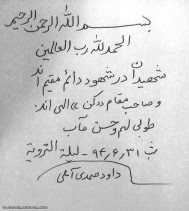 بسم الله الرحمن الرحیم
الحمد لله رب العالمین
شهیدان در شهود دائم مقیم اند
و صاحب مقام دکن الهی اند:
طوبی لهم و حسن مآب
۹۴/۶/۳۱ - لیلة الترویة
داود صمدی آملی